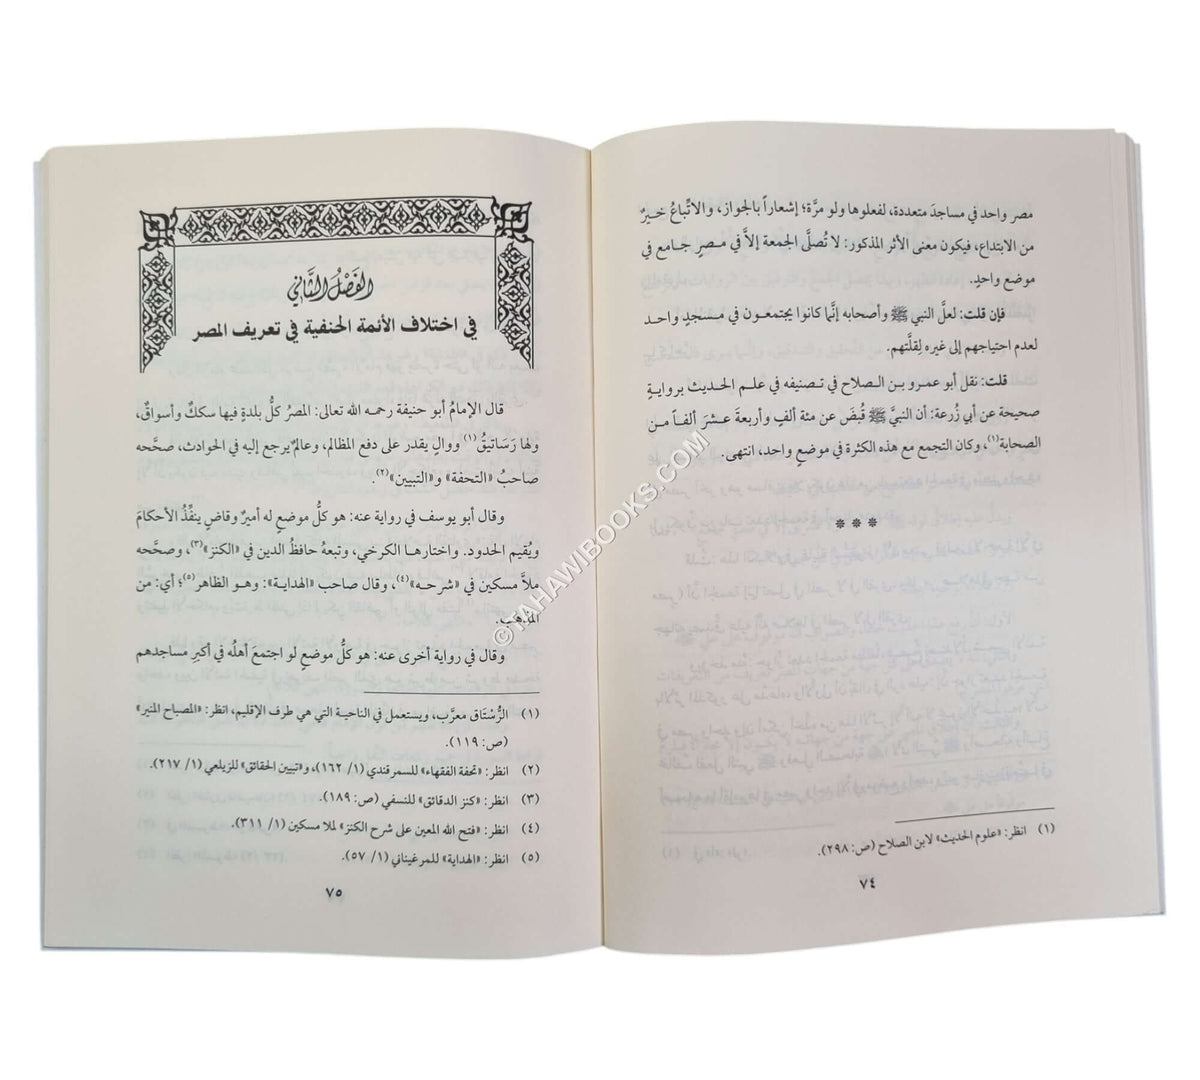 مصر واحد في مساجدَ متعددة، لفعلوها ولو مرَّة؛ إشعاراً بالجواز، والاتِّباعُ خيرٌ
من الابتداع، فيكون معنى الأثر المذكور: لا تُصلَّى الجمعة إلاَّ في مصرٍ جامع في
موضع واحدٍ.
فإن قلت: لعلَّ النبي ﷺ وأصحابه إنَّما كانوا يجتمعون في مسجدٍ واحد
لعدم احتياجهم إلى غيره لِقلَّتهم.
قلت: نقل أبو عمرو بن الصلاح في تصنيفه في علم الحديث بروايةٍ
صحيحة عن أبي زُرعة: أن النبيَّ ﷺ قُبضَ عن مئة ألفٍ وأربعةَ عشرَ ألفاً من
الصحابة(١)، وكان التجمع مع هذه الكثرة في موضعٍ واحد، انتهى.
* * *
(١) انظر: «علوم الحديث» لابن الصلاح (ص: ٢٩٨).
٧٤
الفَصْلُ الثَّانِي
في اختلاف الأئمة الحنفية في تعريف المصر
قال الإمامُ أبو حنيفة رحمه الله تعالى: المصرُ كلُّ بلدةٍ فيها سككٌ وأسواقٌ،
ولها رَسَاتيقُ(١) ووالٍ يقدر على دفع المظالم، وعالمٌ يرجع إليه في الحوادث، صحَّحه
صاحبُ «التحفة» و«التبيين»(٢).
وقال أبو يوسف في رواية عنه: هو كلُّ موضعٍ له أميرٌ وقاضٍ ينفِّذُ الأحكامَ
ويُقيم الحدود. واختارها الكرخي، وتبعهُ حافظُ الدين في «الكنز»(٣)، وصحَّحه
ملاَّ مسكين في «شرحه»(٤)، وقال صاحب «الهداية»: وهو الظاهر(٥)؛ أي: من
المذهب.
وقال في رواية أخرى عنه: هو كلُّ موضعٍ لو اجتمعَ أهلُه في أكبرِ مساجدهم
(١) الرُّسْتَاق معرَّب، ويستعمل في الناحية التي هي طرف الإقليم، انظر: «المصباح المنير»
(ص: ١١٩).
(٢) انظر: «تحفة الفقهاء» للسمرقندي (١/ ١٦٢)، و«تبيين الحقائق» للزيلعي (١/ ٢١٧).
(٣) انظر: «كنز الدقائق» للنسفي (ص: ١٨٩).
(٤) انظر: «فتح الله المعين على شرح الكنز» لملا مسكين (١/ ٣١١).
(٥) انظر: «الهداية» للمرغيناني (١/ ٥٧).
٧٥
©TAHAWIBOOKS.COM